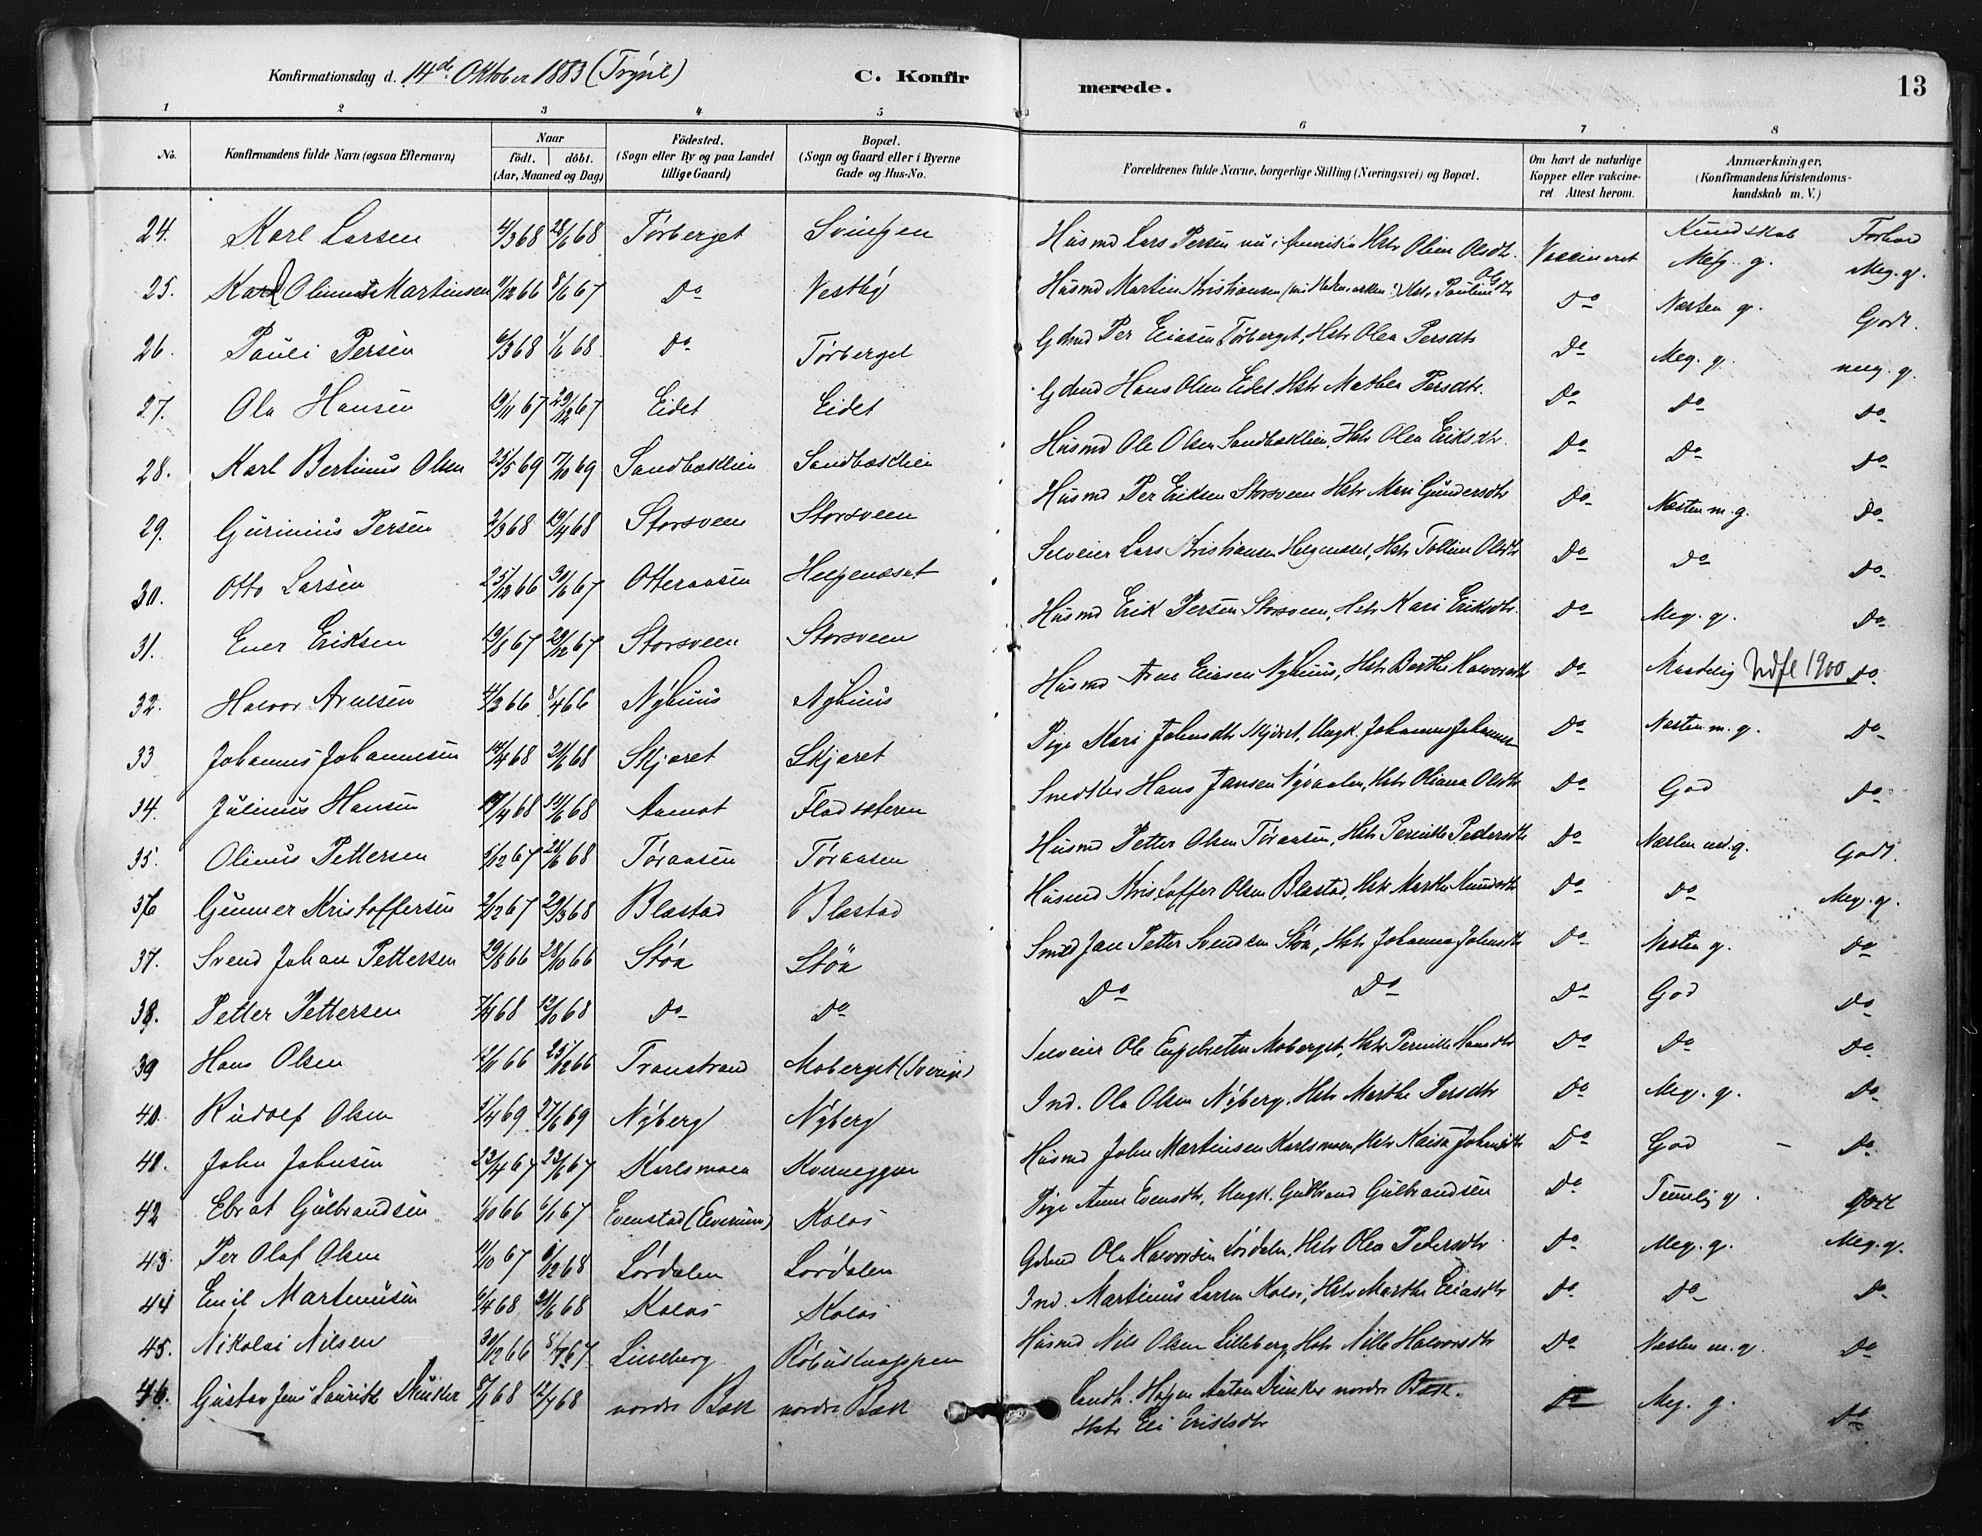 Konfirmationsdag d. 14de Oktober 1883 (Trysil) C. Konfirmerede. 13
1 2 3 4 5 6 7 8
No. Konfirmandens fulde Navn (ogsaa Efternavn) Naar födt. döbt. (Aar, Maaned og Dag) Födested. (Sogn eller By og paa Landet tillige Gaard) Bopæl. (Sogn og Gaard eller i Byerne Gade og Hus-No. Forældrenes fulde Navne, borgerlige Stilling (Næringsvei) og Bopæl. Om havt de naturlige Kopper eller vakcineret Attest herom. Anmærkninger, (Konfirmandens Kristendomskundskab m. V.)
Kundskab Forhold
24. Karl Larsen 4/3 68 28/6 68 Törberget Svingen Husmd Lars Persen nu i Amerika Hstr Oline Olsdtr. Vaccineret Meg. g. Meg. g.
25. Karl Olinus Martinsen 11/12 66 8/6 67 Do Vestby Husmd Martin Kristiansen Hstr Pauline Do Næsten g. Godt.
26. Pauli Persen 6/3 68 1/6 68 Do Törberget Gdmd Per Eiasen Törberget, Hstr Olea Persdtr Do Meg. g. meg. g.
27. Ola Hansen 19/11 67 29/12 67 Eidet Eidet Gdmd Hans Olsen Eidet Hstr Mathea Persdtr. Do Do Do
28. Karl Bertinus Olsen 25/5 69 17/10 69 Sandbæklien Sandbæklien Husmd Ole Olsen Sandbæklien, Hstr Olea Eriksdtr. Do Do Do
29. Gurinius Persen 2/3 68 19/4 68 Storsveen Storsveen Husmd Per Eriksen Storsveen Hstr Mari Gundersdtr Do Næsten m. g. Do
30. Otto Larsen 25/12 66 30/6 67 Otteraasen Helgenæset Selveier Lars Kristiansen Helgenæset, Hstr Olsdtr Do Do Do
31. Ener Eriksen 19/8 67 29/12 67 Storsveen Storsveen Husmd Erik Persen Storsveen, Hstr Kari Eriksdtr. Do Meg. g. Do
32. Halvor Arnesen 4/3 66 8/4 66 Nyhuus Nyhuus Husmd Arne Eiasen Nyhuus, Hstr Berthe Halvorsdtr Do Maadelig Udfl 1900 Do
33 Johannes Johannesen 14/4 68 21/6 68 Skjæret Skjæret Pige Kari Johnsdtr Skjæret, Ungk. Johannes Johannes Do Næsten m. g. Do
34. Julinus Hansen 19/4 68 14/6 68 Aamot Fladsæteren Snedker Hans Jansen Hstr Oliana Olsdtr Do God Do
35. Olinus Pettersen 5/12 67 28/6 68 Töraasen Töraasen Husmd Petter Olsen Töraasen, Hstr Pernille Pedersdtr Do Næsten m. g. Godt.
36 Gunner Kristoffersen 2/12 67 29/3 68 Blæstad Blæstad Husmd Kristoffer Olsen Blæstad, Hstr Marthe Knudsdtr Do Do Meg. g.
37. Svend Johan Pettersen 29/8 66 28/10 66 Støa Støa Smed Jan Petter Svendsen Støa, Hstr Johanna Johnsdtr Do Næsten g. Do
38. Petter Pettersen 7/4 68 12/10 68 Do Do Do Do Do God Do
39 Hans Olsen 12/11 66 25/12 66 Transtrand Moberget (Sverige) Selveier Ole Engebretsen Moberget, Hstr Pernille Hansdtr Do Do Do
40. Rudolf Olsen 5/4 69 27/6 69 Nyberg Nyberg Ind. Ola Olsen Nyberg. Hstr Marthe Persdtr Do Meg. g. Do
41. John Johnsen 22/4 67 23/6 67 Karlsmoen Kverneggen Husmd John Martinsen Karlsmoen, Hstr Kaisa Johansdtr Do God – Do
42 Ebrat Gulbrandsen 1/10 66 6/1 67 Evenstad (Elverum) Kolos Pige Anne Evensdtr, Ungk. Gulbrand Gulbrandsen Do Temlig g. Godt
43. Per Olaf Olsen 11/10 67 6/12 68 Lørdalen Lørdalen Gdmd Ola Halvorsen Lørdalen, Hstr Olea Pedersdtr Do Meg. g. Meg. g.
44 Emil Martinusen 4/4 68 21/6 68 Kolos Kolos Ind. Martinus Larsen Kolos, Hstr Marthe Eiasdtr Do Do Do
45. Nikolai Nilsen 30/12 66 8/7 67 Lilleberg Husmd Nils Olsen Lilleberg, Hstr Nille Halvorsdtr Do Næsten m. g. Do
46. Gustav Jens Lauritz Dunker 8/1 68 12/4 68 nordre Bæk nordre Bæk Landh. Hagen Anton Dunker nordre Bæk. Do Meg. g. Do
Hstr Eli Eriksdtr